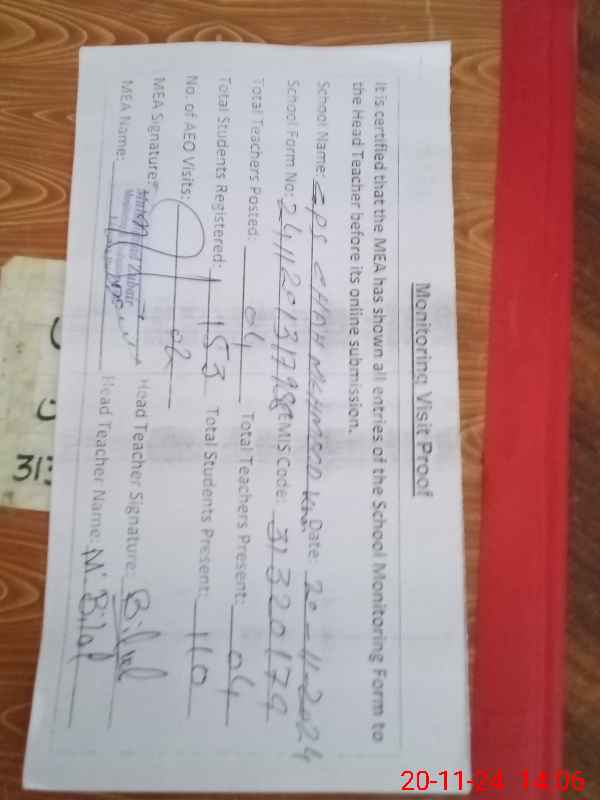 Monitoring Visit Proof
It is certified that the MEA has shown all entries of the School Monitoring Form to
the Head Teacher before its online submission.
School Name: GPS CHAH Date: 20-11-2024
School Form No: EMIS Code: 31320179
Total Teachers Posted: 04 Total Teachers Present: 04
Total Students Registered: 153 Total Students Present: 110
No. of AEO Visits: 02
MEA Signature: Head Teacher Signature: Bilal
MEA Name: Zubair Head Teacher Name: M. Bilal
313
20-11-24 14:06